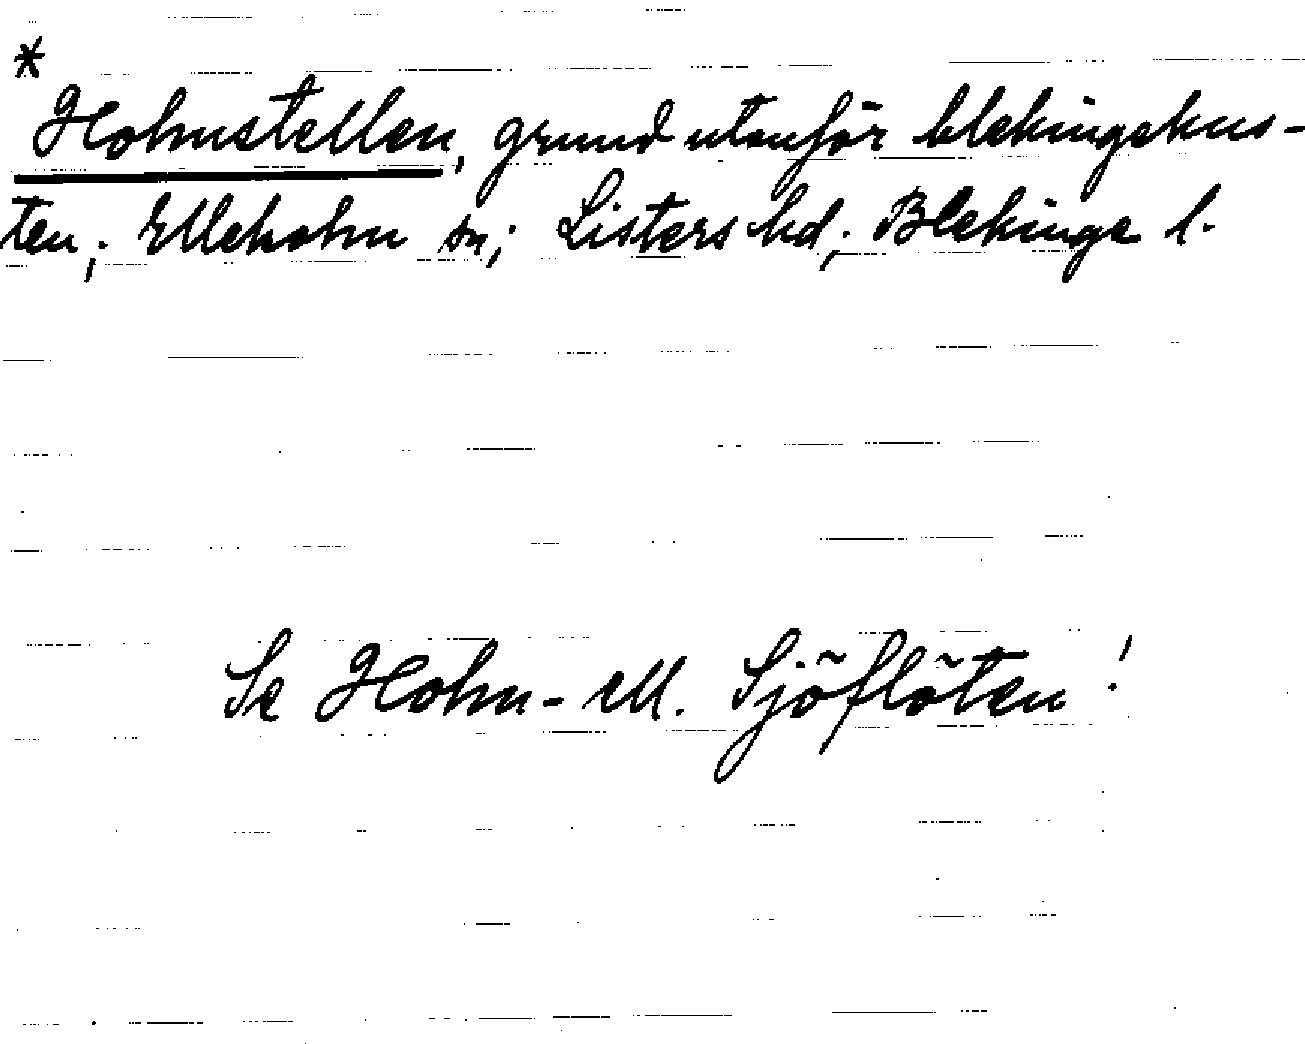 *
Holmstellen, grund utanför blekingekus-
ten; Elleholm sn; Listers hd; Blekinge l.
Se Holm- ell. Sjöflöten!